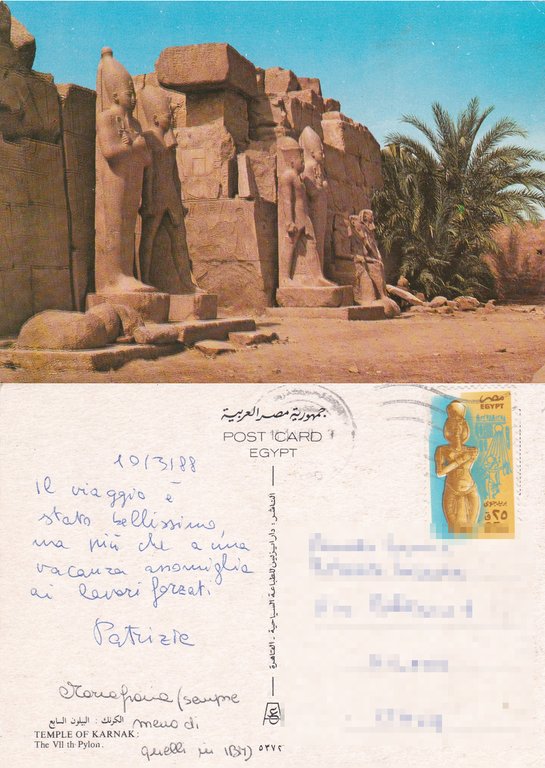 جمهورية مصر العربية
POST CARD
EGYPT
مصر
EGYPT
٢٥
10/3/88
Il viaggio è
stato bellissimo,
ma più che a una
vacanza assomiglia
ai lavori forzati.
Patrizia
Mariagrazia (sempre
meno di
quelli in IBM)
الناشر: دار ايزيس للطباعة السياحية - القاهرة
الكرنك: البيلون السابع
TEMPLE OF KARNAK:
The VII th Pylon.
٥٣٧٢